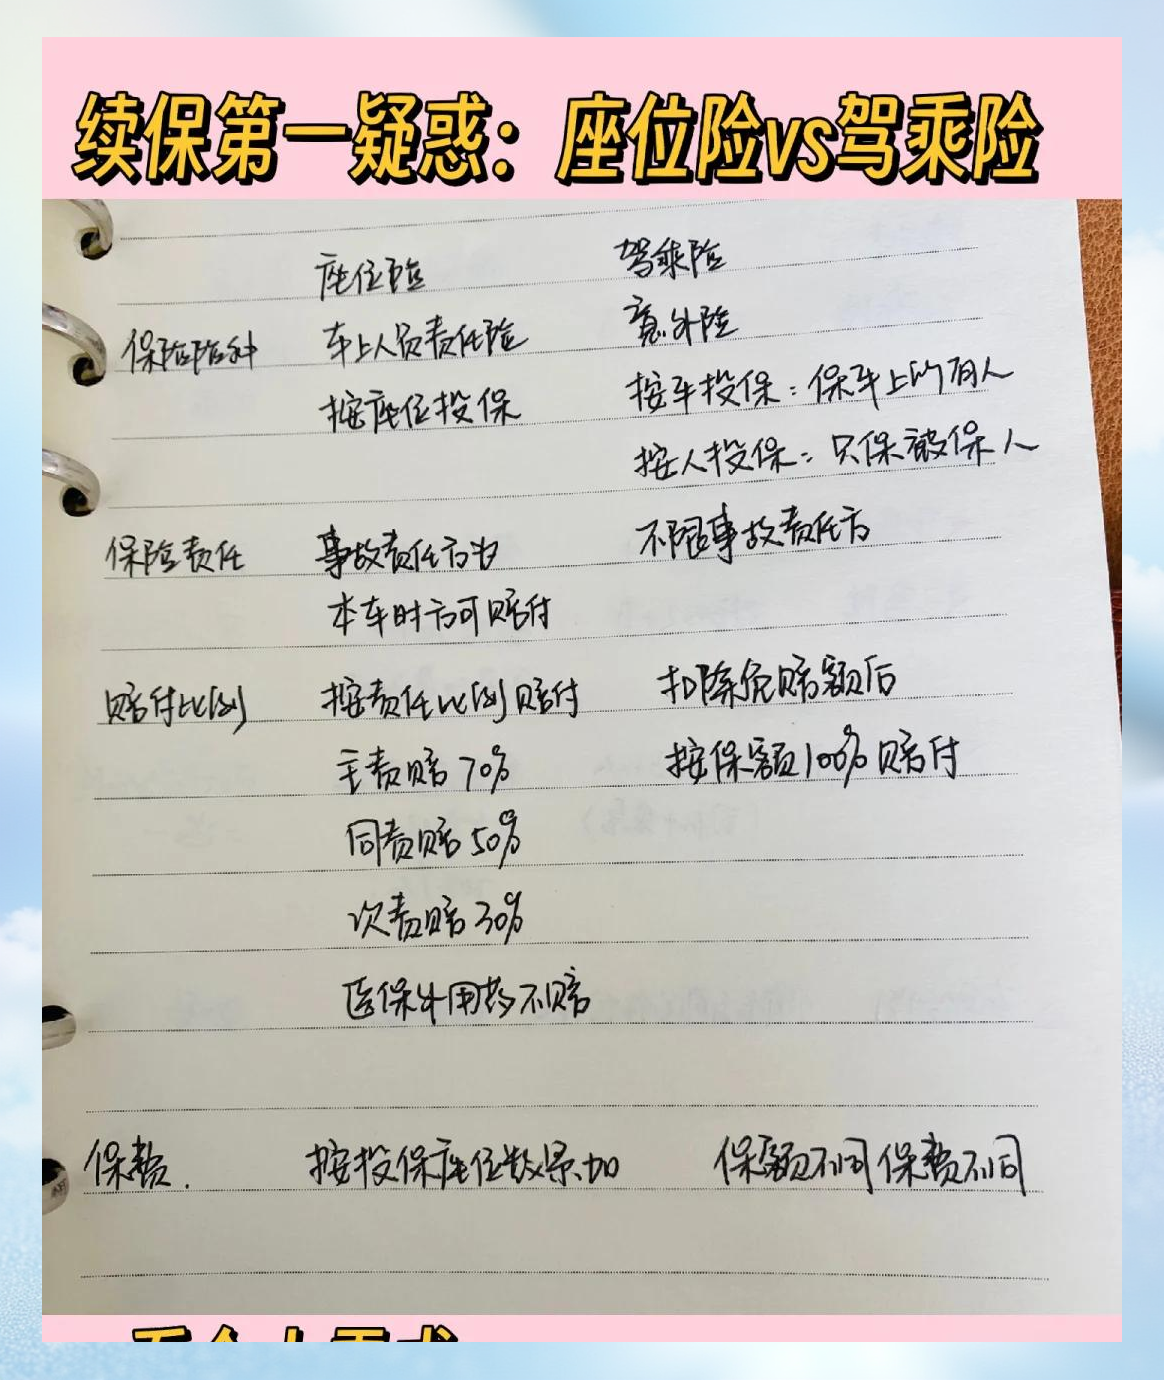 续保第一疑惑：座位险vs驾乘险
座位险 驾乘险
保险险种 车上人员责任险 意外险
按座位投保 按车投保：保车上所有人
按人投保：只保被保人
保险责任 事故责任方为 不限事故责任方
本车时方可赔付
赔付比例 按责任比例赔付 扣除免赔额后
主责赔70% 按保额100%赔付
同责赔50%
次责赔30%
医保外用药不赔
保费. 按投保座位数累加 保额不同保费不同